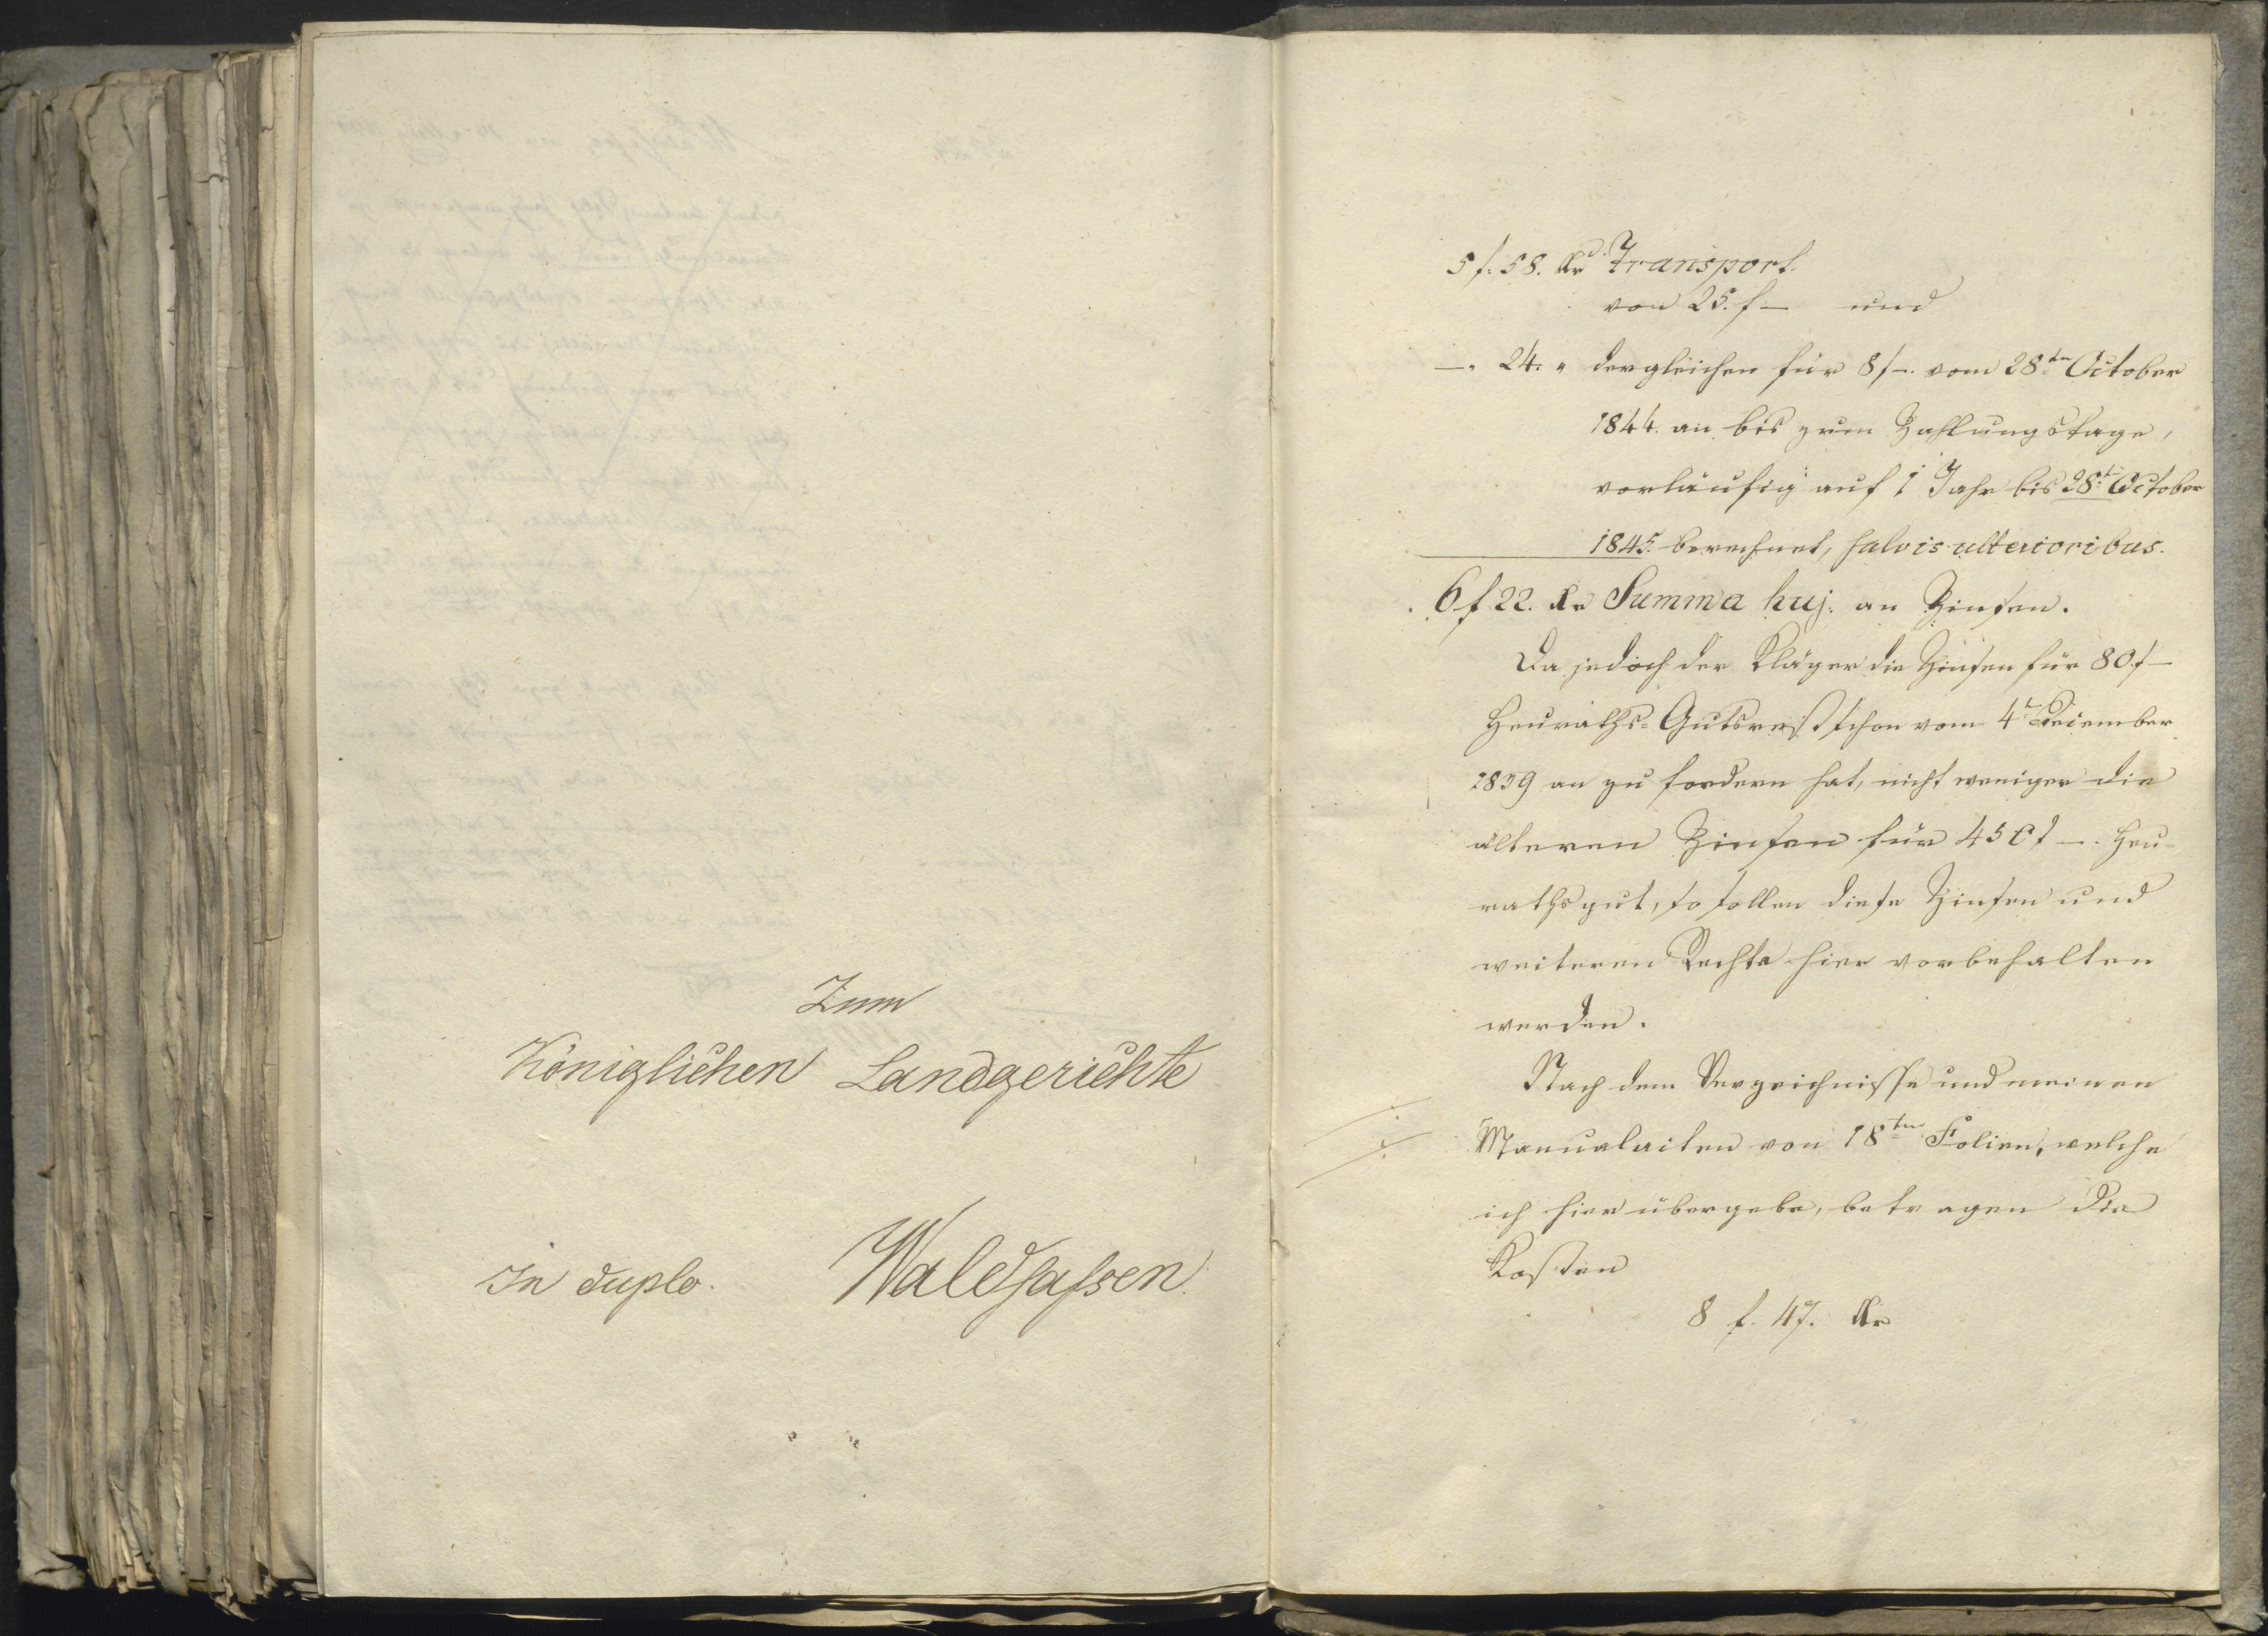 Zum
Königlichen Landgerichte
In duplo. Waldsassen.
5 f. 58. kr Transport.
von 25. f — und
— „ 24. „ dergleichen für 8 f —. vom 28ten October
1844. an bis zum Zahlungstage,
vorläufig auf 1 Jahr bis 28t October
1845. berechnet, salvis ulterioribus.
6 f 22. kr Summa huj. an Zinsen.
Da jedoch der Kläger die Zinsen für 80 f —
Heuraths-Gutsrest schon vom 4t December
1839 an zu fordern hat, nicht weniger die
älteren Zinsen für 450 f —. Heu-
rathsgut, so sollen diese Zinsen und
weiteren Rechte hier vorbehalten
werden.
Nach dem Verzeichnisse und meinen
Manualacten von 18ten Folien, welche
ich hier übergebe, betragen die
Kosten
8 f. 47. kr